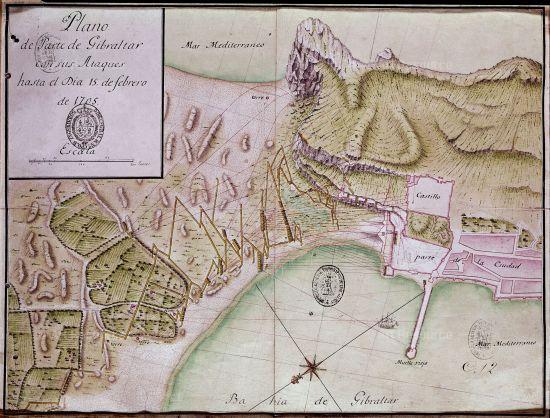 Plano
de Parte de Gibraltar
con sus Ataques
hasta el Dia 15 de febrero
de 1705
Escala
Mar Mediterraneo
torre
Castillo
parte de la Ciudad
Mar Mediterraneo
Muelle viejo
C. 12
torre
Bahia de Gibraltar